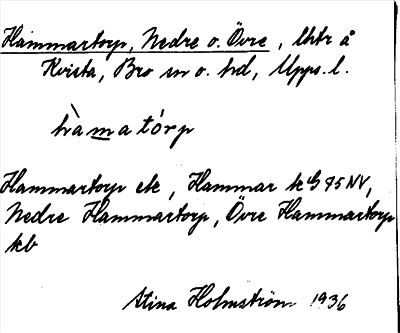 Hammartorp, Nedre o. Övre, lhtr å
Kvista, Bro sn o. hd, Upps. l.
hàmatórp
Hammartorp ek, Hammar k 95 NV,
Nedre Hammartorp, Övre Hammartorp
kb
Stina Holmström 1936